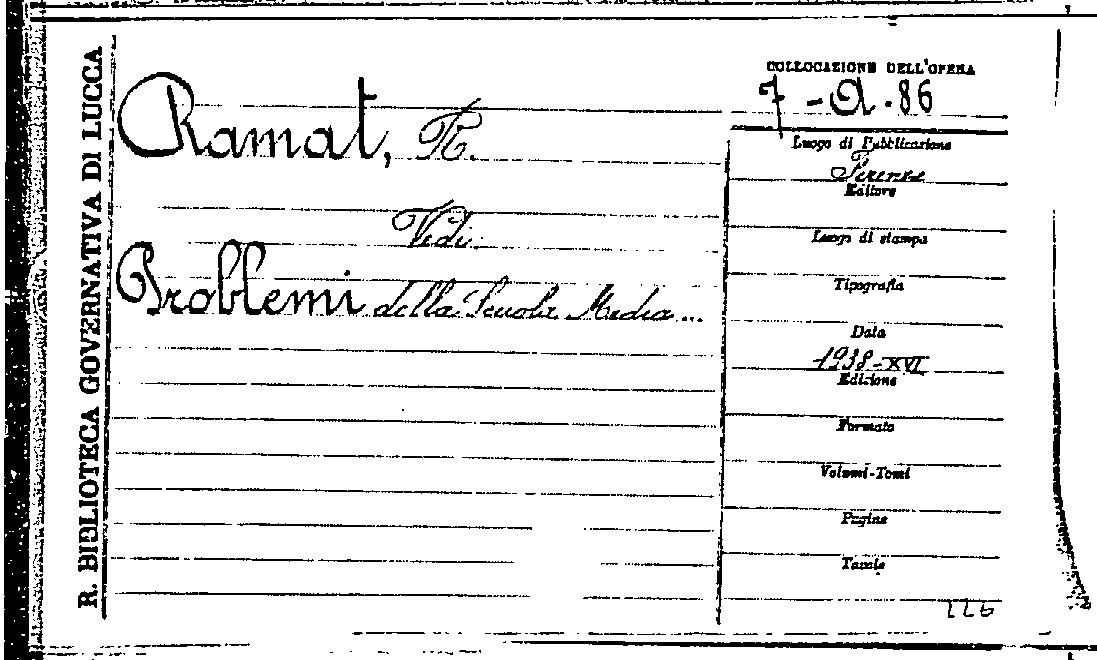 R. BIBLIOTECA GOVERNATIVA DI LUCCA
Ramat, R.
Vedi:
Problemi della Scuola Media...
COLLOCAZIONE DELL'OPERA
7-A.86
Luogo di Pubblicazione
Firenze
Editore
Luogo di stampa
Tipografia
Data
1938-XVI
Edizione
Formato
Volumi-Tomi
Pagine
Tavole